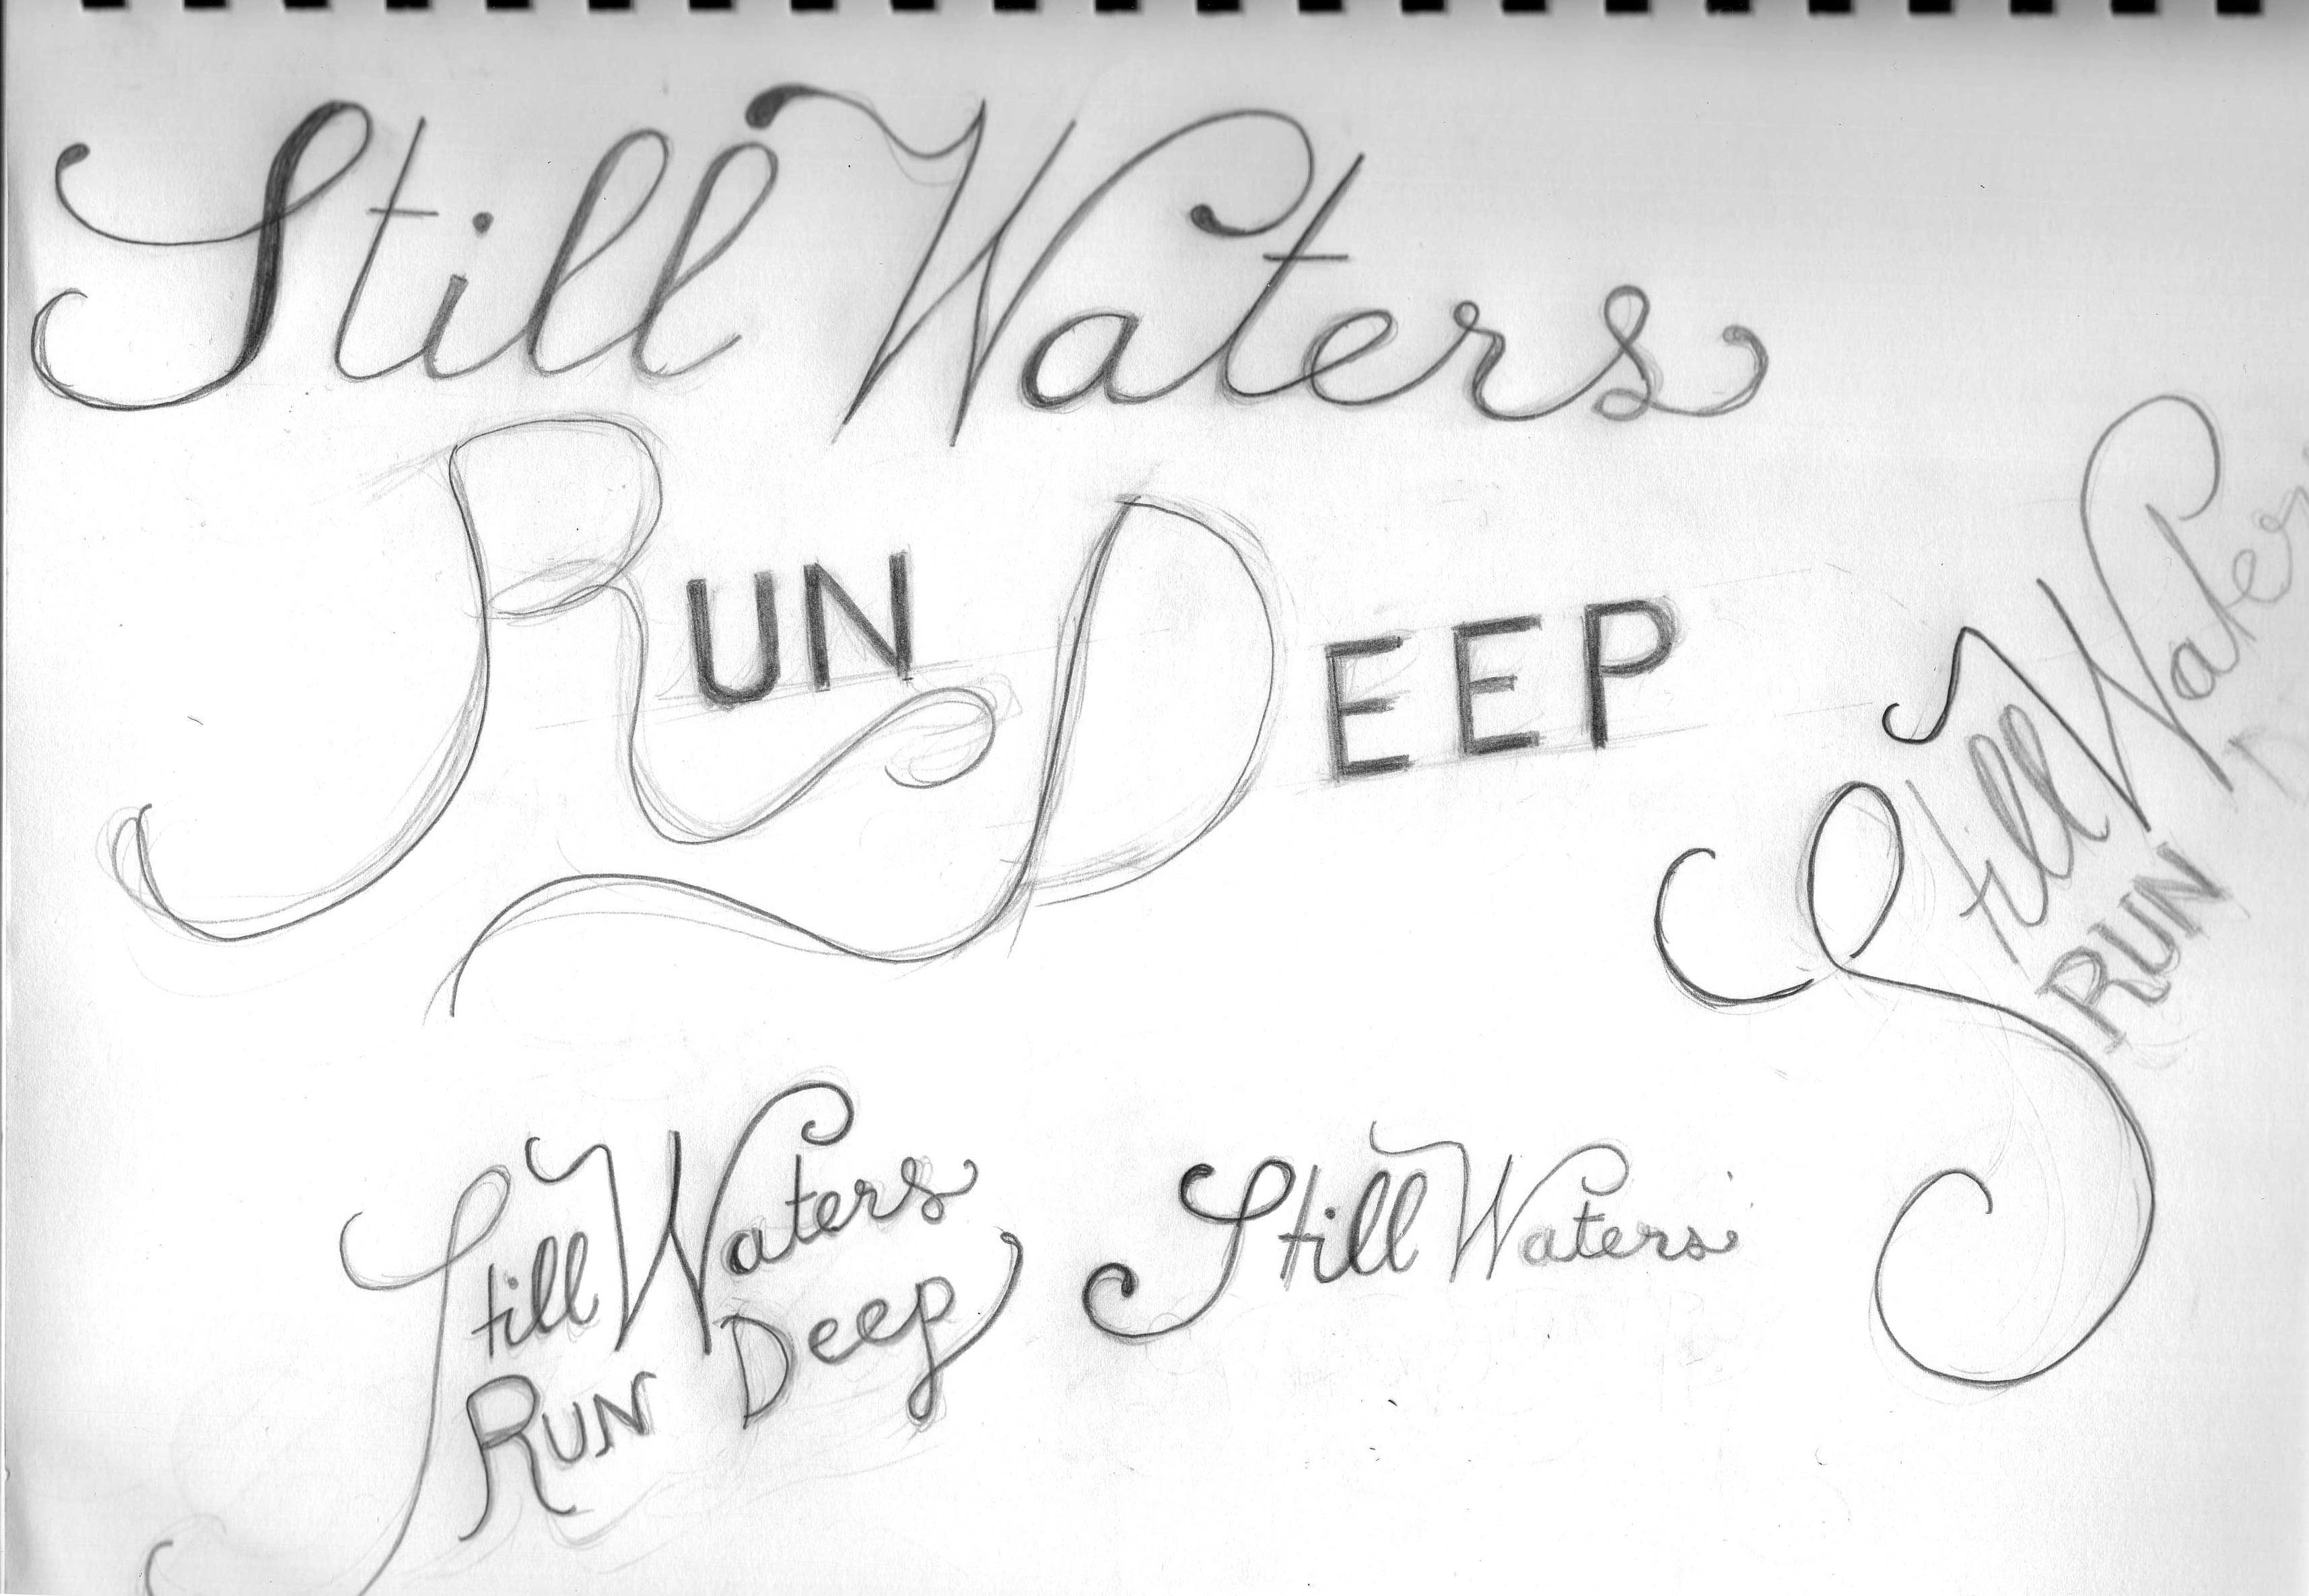 Still Waters
RUN DEEP
Still Waters
RUN
Still Waters
RUN Deep
Still Waters